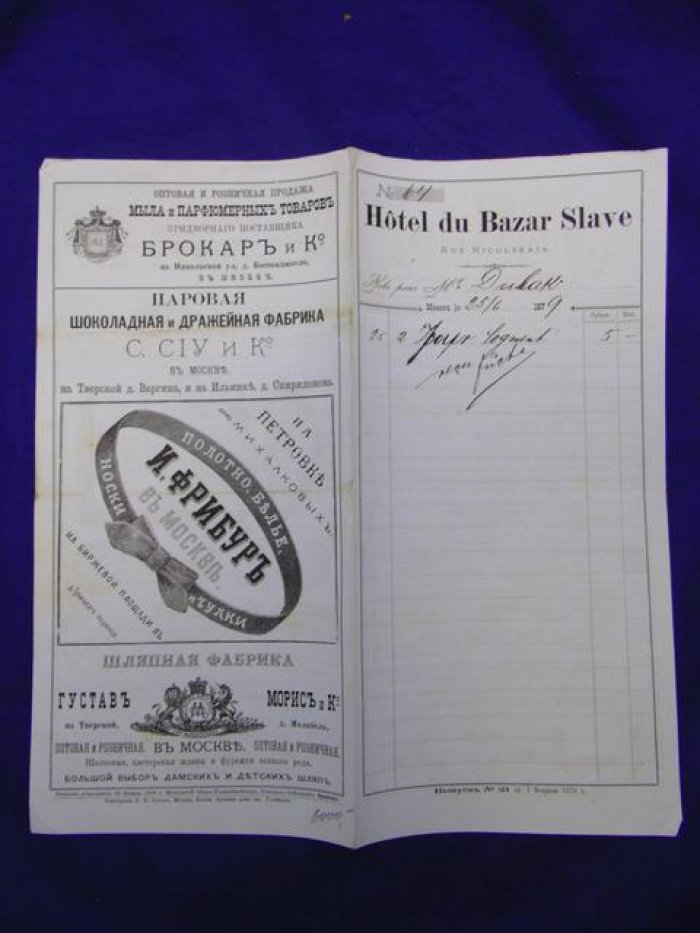 ОПТОВАЯ И РОЗНИЧНАЯ ПРОДАЖА
МЫЛА И ПАРФЮМЕРНЫХЪ ТОВАРОВЪ
ПРИДВОРНАГО ПОСТАВЩИКА
БРОКАРЪ и Ко
на Никольской ул. д. Бостанджогло,
ВЪ МОСКВѢ.
ПАРОВАЯ
ШОКОЛАДНАЯ и ДРАЖЕЙНАЯ ФАБРИКА
С. СІУ и Ко
ВЪ МОСКВѢ.
на Тверской д. Варгина, и на Ильинкѣ, д. Спиридонова.
НА
ПЕТРОВКѢ
домъ МИХАЛКОВЫХЪ.
ПОЛОТНО, БѢЛЬЕ,
НОСКИ
И. ФРИБУРЪ
ВЪ МОСКВѢ
и ЧУЛКИ
НА БИРЖЕВОЙ ПЛОЩАДИ ВЪ
ШЛЯПНАЯ ФАБРИКА
ГУСТАВЪ МОРИСЪ и Ко
на Тверской, д. Малкіель,
ОПТОВАЯ и РОЗНИЧНАЯ. ВЪ МОСКВѢ. ОПТОВАЯ и РОЗНИЧНАЯ.
Шелковыя, касторовыя шляпы и фуражки всякаго рода.
БОЛЬШОЙ ВЫБОРЪ ДАМСКИХЪ И ДѢТСКИХЪ ШЛЯПЪ.
5000,-
N 64
Hôtel du Bazar Slave
Rue Nicolskaïa.
Note pour Mr
Moscou le 25/6 1879
25 2 Jours Logement 5 —
Выпускъ № 21 съ 1 Февраля 1879 г.